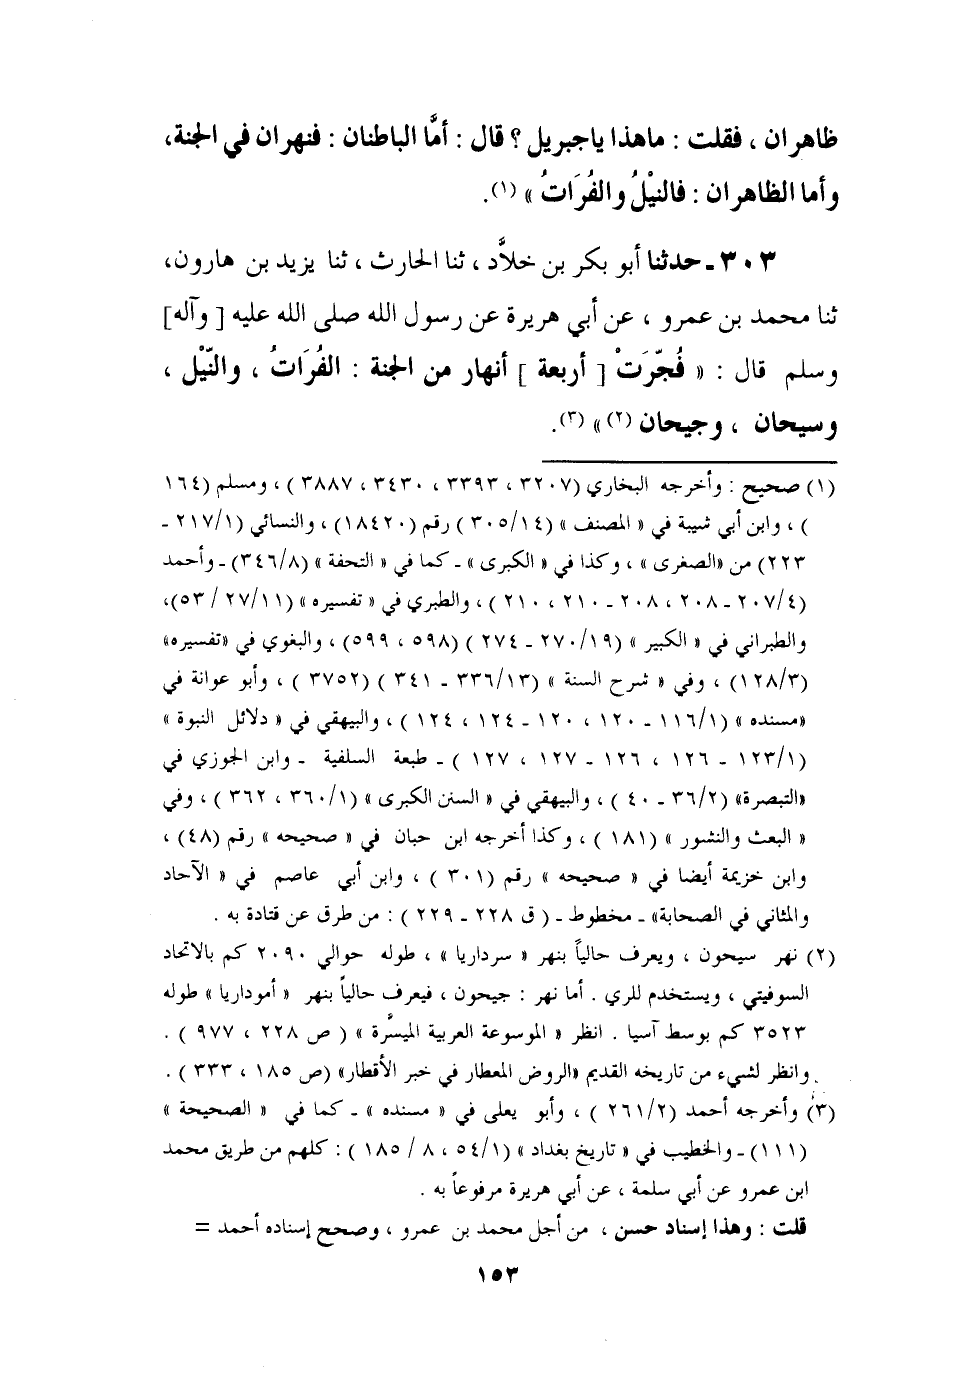 ظاهران ، فقلت : ماهذا ياجبريل ؟ قال : أمَّا الباطنان : فنهران في الجنة،
وأما الظاهران : فالنيْلُ والفُرَاتُ » (١).
٣٠٣ـ حدثنا أبو بكر بن خلاَّد ، ثنا الحارث ، ثنا يزيد بن هارون،
ثنا محمد بن عمرو ، عن أبي هريرة عن رسول الله صلى الله عليه [ وآله]
وسلم قال : « فُجّرَتْ [ أربعة ] أنهار من الجنة : الفُرَاتُ ، والنّيْل ،
وسيحان ، وجيحان (٢)» (٣).
(١) صحيح : وأخرجه البخاري (٣٢٠٧ ، ٣٣٩٣ ، ٣٤٣٠ ، ٣٨٨٧ ) ، ومسلم (١٦٤
) ، وابن أبي شيبة في « المصنف » (٣٠٥/١٤ ) رقم (١٨٤٢٠) ، والنسائي (٢١٧/١ ـ
٢٢٣) من «الصغرى » ، وكذا في « الكبرى » ـ كما في « التحفة » (٣٤٦/٨) ـ وأحمد
(٢٠٧/٤ ـ ٢٠٨ ، ٢٠٨ ـ ٢١٠ ، ٢١٠ ) ، والطبري في « تفسيره » (٢٧/١١ / ٥٣)،
والطبراني في « الكبير » (٢٧٠/١٩ ـ ٢٧٤ ) (٥٩٨ ، ٥٩٩) ، والبغوي في «تفسيره»
(١٢٨/٣) ، وفي « شرح السنة » (٣٣٦/١٣ ـ ٣٤١ ) (٣٧٥٢ ) ، وأبو عوانة في
«مسنده » (١١٦/١ ـ ١٢٠ ، ١٢٠ ـ ١٢٤ ، ١٢٤ ) ، والبيهقي في « دلائل النبوة »
(١٢٣/١ ـ ١٢٦ ، ١٢٦ ـ ١٢٧ ، ١٢٧ ) ـ طبعة السلفية ـ وابن الجوزي في
«التبصرة» (٣٦/٢ ـ ٤٠ ) ، والبيهقي في « السنن الكبرى » (٣٦٠/١ ، ٣٦٢ ) ، وفي
« البعث والنشور » (١٨١ ) ، وكذا أخرجه ابن حبان في « صحيحه » رقم (٤٨) ،
وابن خزيمة أيضا في « صحيحه » رقم (٣٠١ ) ، وابن أبي عاصم في « الآحاد
والمثاني في الصحابة» ـ مخطوط ـ ( ق ٢٢٨ ـ ٢٢٩ ) : من طرق عن قتادة به .
(٢) نهر سيحون ، ويعرف حالياً بنهر « سرداريا » ، طوله حوالي ٢٠٩٠ كم بالاتحاد
السوفيتي ، ويستخدم للري . أما نهر : جيحون ، فيعرف حالياً بنهر « أموداريا » طوله
٣٥٢٣ كم بوسط آسيا . انظر « الموسوعة العربية الميسَّرة » ( ص ٢٢٨ ، ٩٧٧ ) .
وانظر لشيء من تاريخه القديم «الروض المعطار في خبر الأقطار» (ص ١٨٥ ، ٣٣٣ ) .
(٣) وأخرجه أحمد (٢٦١/٢ ) ، وأبو يعلى في « مسنده » ـ كما في « الصحيحة »
(١١١) ـ والخطيب في « تاريخ بغداد » (٥٤/١ ، ٨ / ١٨٥ ) : كلهم من طريق محمد
ابن عمرو عن أبي سلمة ، عن أبي هريرة مرفوعاً به .
قلت : وهذا إسناد حسن ، من أجل محمد بن عمرو ، وصحح إسناده أحمد =
١٥٣